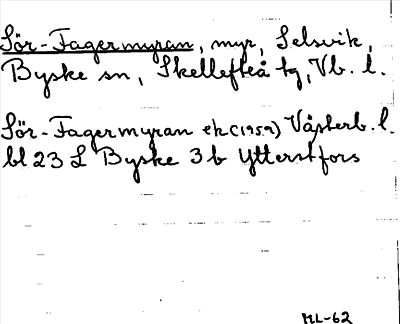 Sör-Fagermyran, myr, Selsvik,
Byske sn, Skellefteå tg, Vb. l.
Sör-Fagermyran ek (1959) Västerb. l.
bl 23 L Byske 3 b Ytterstfors
ML-62